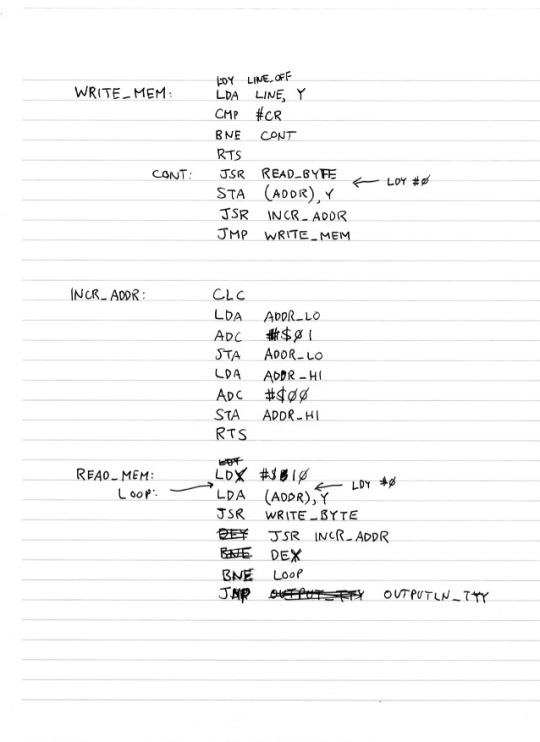 LDY LINE_OFF
WRITE_MEM: LDA LINE, Y
CMP #CR
BNE CONT
RTS
CONT: JSR READ_BYTE
← LDY #0
STA (ADDR), Y
JSR INCR_ADDR
JMP WRITE_MEM
INCR_ADDR: CLC
LDA ADDR_LO
ADC #$01
STA ADDR_LO
LDA ADDR_HI
ADC #$00
STA ADDR_HI
RTS
READ_MEM: LDX #$10
LOOP: → ← LDY #0
LDA (ADDR), Y
JSR WRITE_BYTE
DEY JSR INCR_ADDR
BNE DEX
BNE LOOP
JMP OUTPUT_TTY OUTPUTLN_TTY